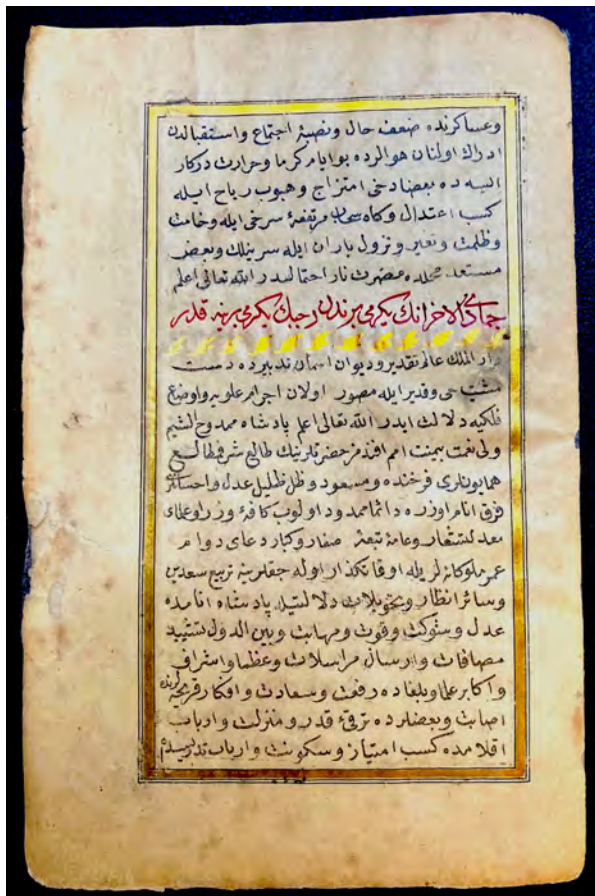 وعساكرنده ضعف حال ونصبهٔ اجتماع واستقبالدن
ادراك اولنان هوالرده بو ايام كرما وحرارت دركار
ايسه ده بعضا دخى امتزاج وهبوب رياح ايله
كسب اعتدال وكاه سحاب مرتفعهٔ سرخى ايله وخامت
وظلمت وتغير ونزول باران ايله سرينلك وبعض
مستعد محلده مضرت نار احتماليدر الله تعالى اعلم
جمادى الاخرانك يكرمى برندن رجبك يكرمى برينه قدر
دار الملك عالم تقدير وديوان اسمان تدبيرده دست
مشيت حى وقدير ايله مصور اولان اجرام علويه واوضاع
فلكيه دلالت ايدر الله تعالى اعلم پادشاه ممدوح الشيم
ولى نعمت بيمنت امم افندمز حضرتلرينك طالع شرف طالع
همايونلرى فرخنده ومسعود وظل ظليل عدل واحسانلرى
فرق انام اوزره دائما ممدود اولوب كافهٔ وزرا وعلماى
معدلتشعار وعامهٔ تبعهٔ صغار وكبار دعاى دوام
عمر ملوكانه لريله اوقاتكذار اوله جقلرينه تربيع سعدين
وسائر انظار وتحويلات دلالتيله پادشاه انامده
عدل وشوكت وقوت ومهابت وبين الدول تشييد
مصافات وارسال مراسلات وعظما واشراف
واكابر علما وبلغاده رفعت وسعادت وافكار قريحه لرنده
اصابت وبعضلرده ترقئ قدر ومنزلت وارباب
اقلامده كسب امتياز وسكونت وارباب